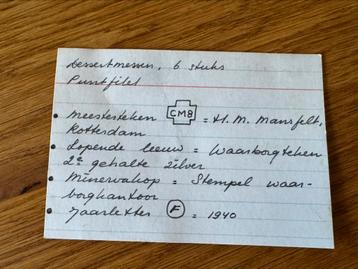 Dessertmessen, 6 stuks
Puntfilet
• Meesterteken CMB = H. M. Mansfelt,
Rotterdam
• Lopende leeuw = Waarborgteken
2e gehalte zilver
• Minervakop = Stempel waar-
borgkantoor
• Jaarletter F = 1940